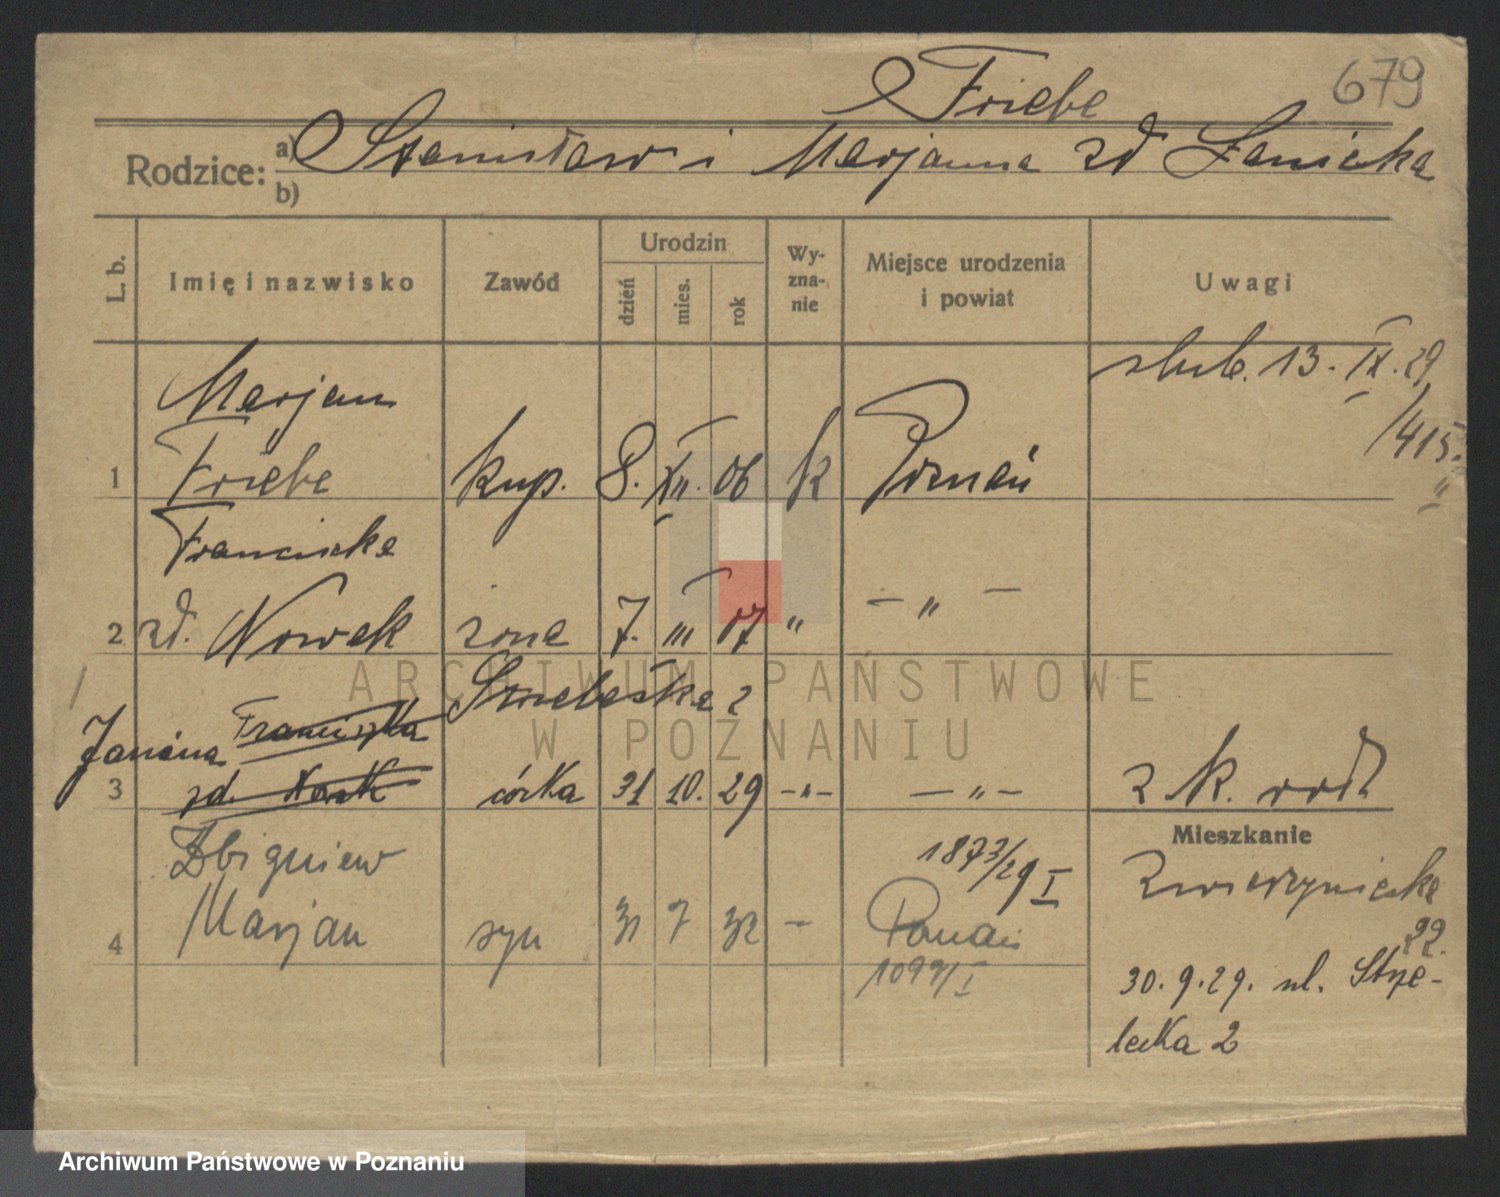 679
Friebe
Rodzice: a) Stanisław i Marjanna zd
b)
L. b.
Imię i nazwisko
Zawód
Urodzin
dzień
mies.
rok
Wy-
zna-
nie
Miejsce urodzenia
i powiat
Uwagi
ślub. 13. IX. 29
/415.
Marjan
1 Friebe kup. 8. XII. 06 k Poznań
Franciszka
2 zd. Nowak żona 7. III 07 " — " —
Strzelecka 2
Franciszka
Janina
3 zd. Nowak córka 31 10. 29 -"- — " — z k. rodz
Mieszkanie
Zbigniew
1873/29 I
Zwierzyniecka
22.
4 Marjan syn 31 7 32 — Poznań
1099/I
30. 9. 29. ul. Strze-
lecka 2
ARCHIWUM PAŃSTWOWE
W POZNANIU
Archiwum Państwowe w Poznaniu